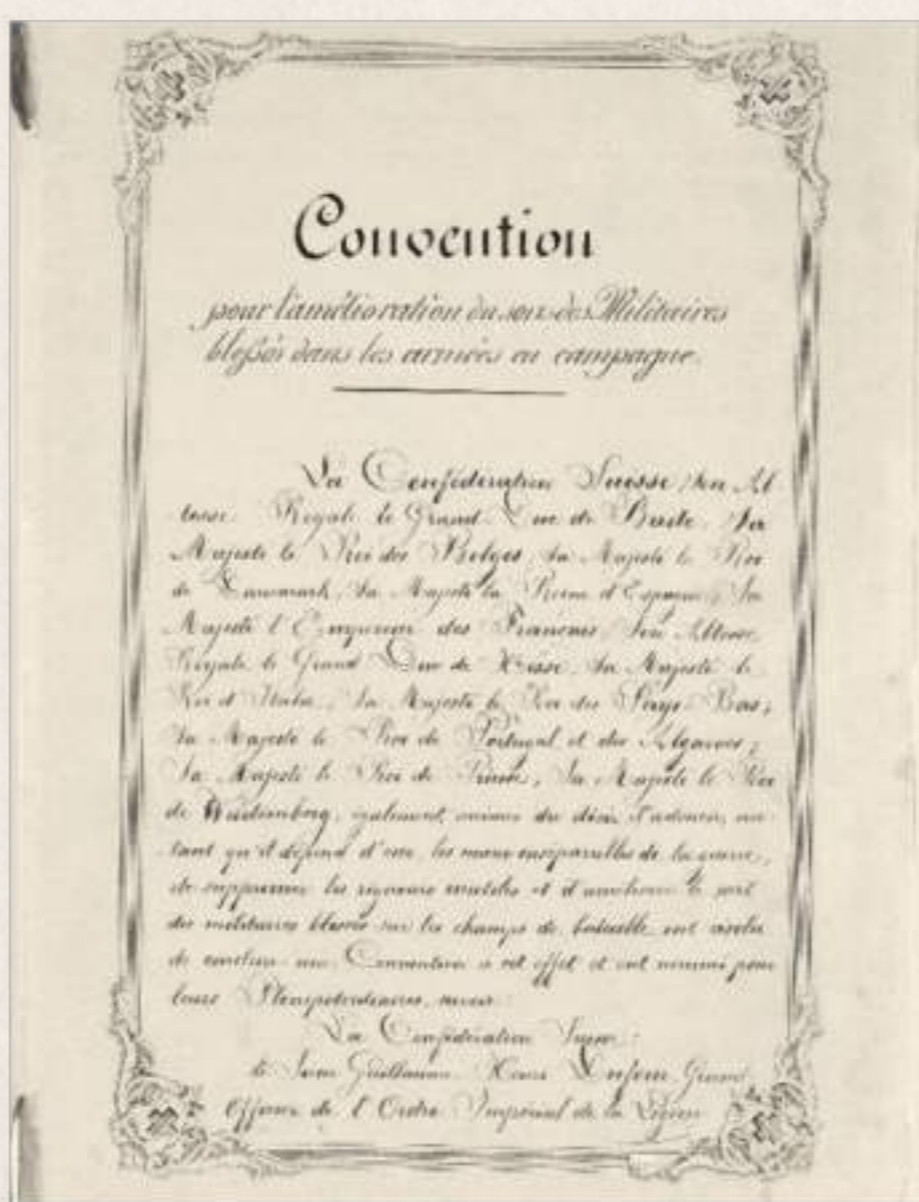 Convention
pour l'amélioration du sort des Militaires
blessés dans les armées en campagne.
La Confédération Suisse, Son Al
tesse Royale le Grand-Duc de Bade, Sa
Majesté le Roi des Belges, Sa Majesté le Roi
de Danemark, Sa Majesté la Reine d'Espagne, Sa
Majesté l'Empereur des Français, Son Altesse
Royale le Grand-Duc de Hesse, Sa Majesté le
Roi d'Italie, Sa Majesté le Roi des Pays-Bas,
Sa Majesté le Roi de Portugal et des Algarves,
Sa Majesté le Roi de Prusse, Sa Majesté le Roi
de Wurtemberg, également animés du désir d'adoucir, au
tant qu'il dépend d'eux, les maux inséparables de la guerre,
de supprimer les rigueurs inutiles et d'améliorer le sort
des militaires blessés sur les champs de bataille, ont résolu
de conclure une Convention à cet effet et ont nommé pour
leurs Plénipotentiaires, savoir:
La Confédération Suisse:
le Sieur Guillaume-Henri Dufour, Grand
Officier de l'Ordre Impérial de la Légion